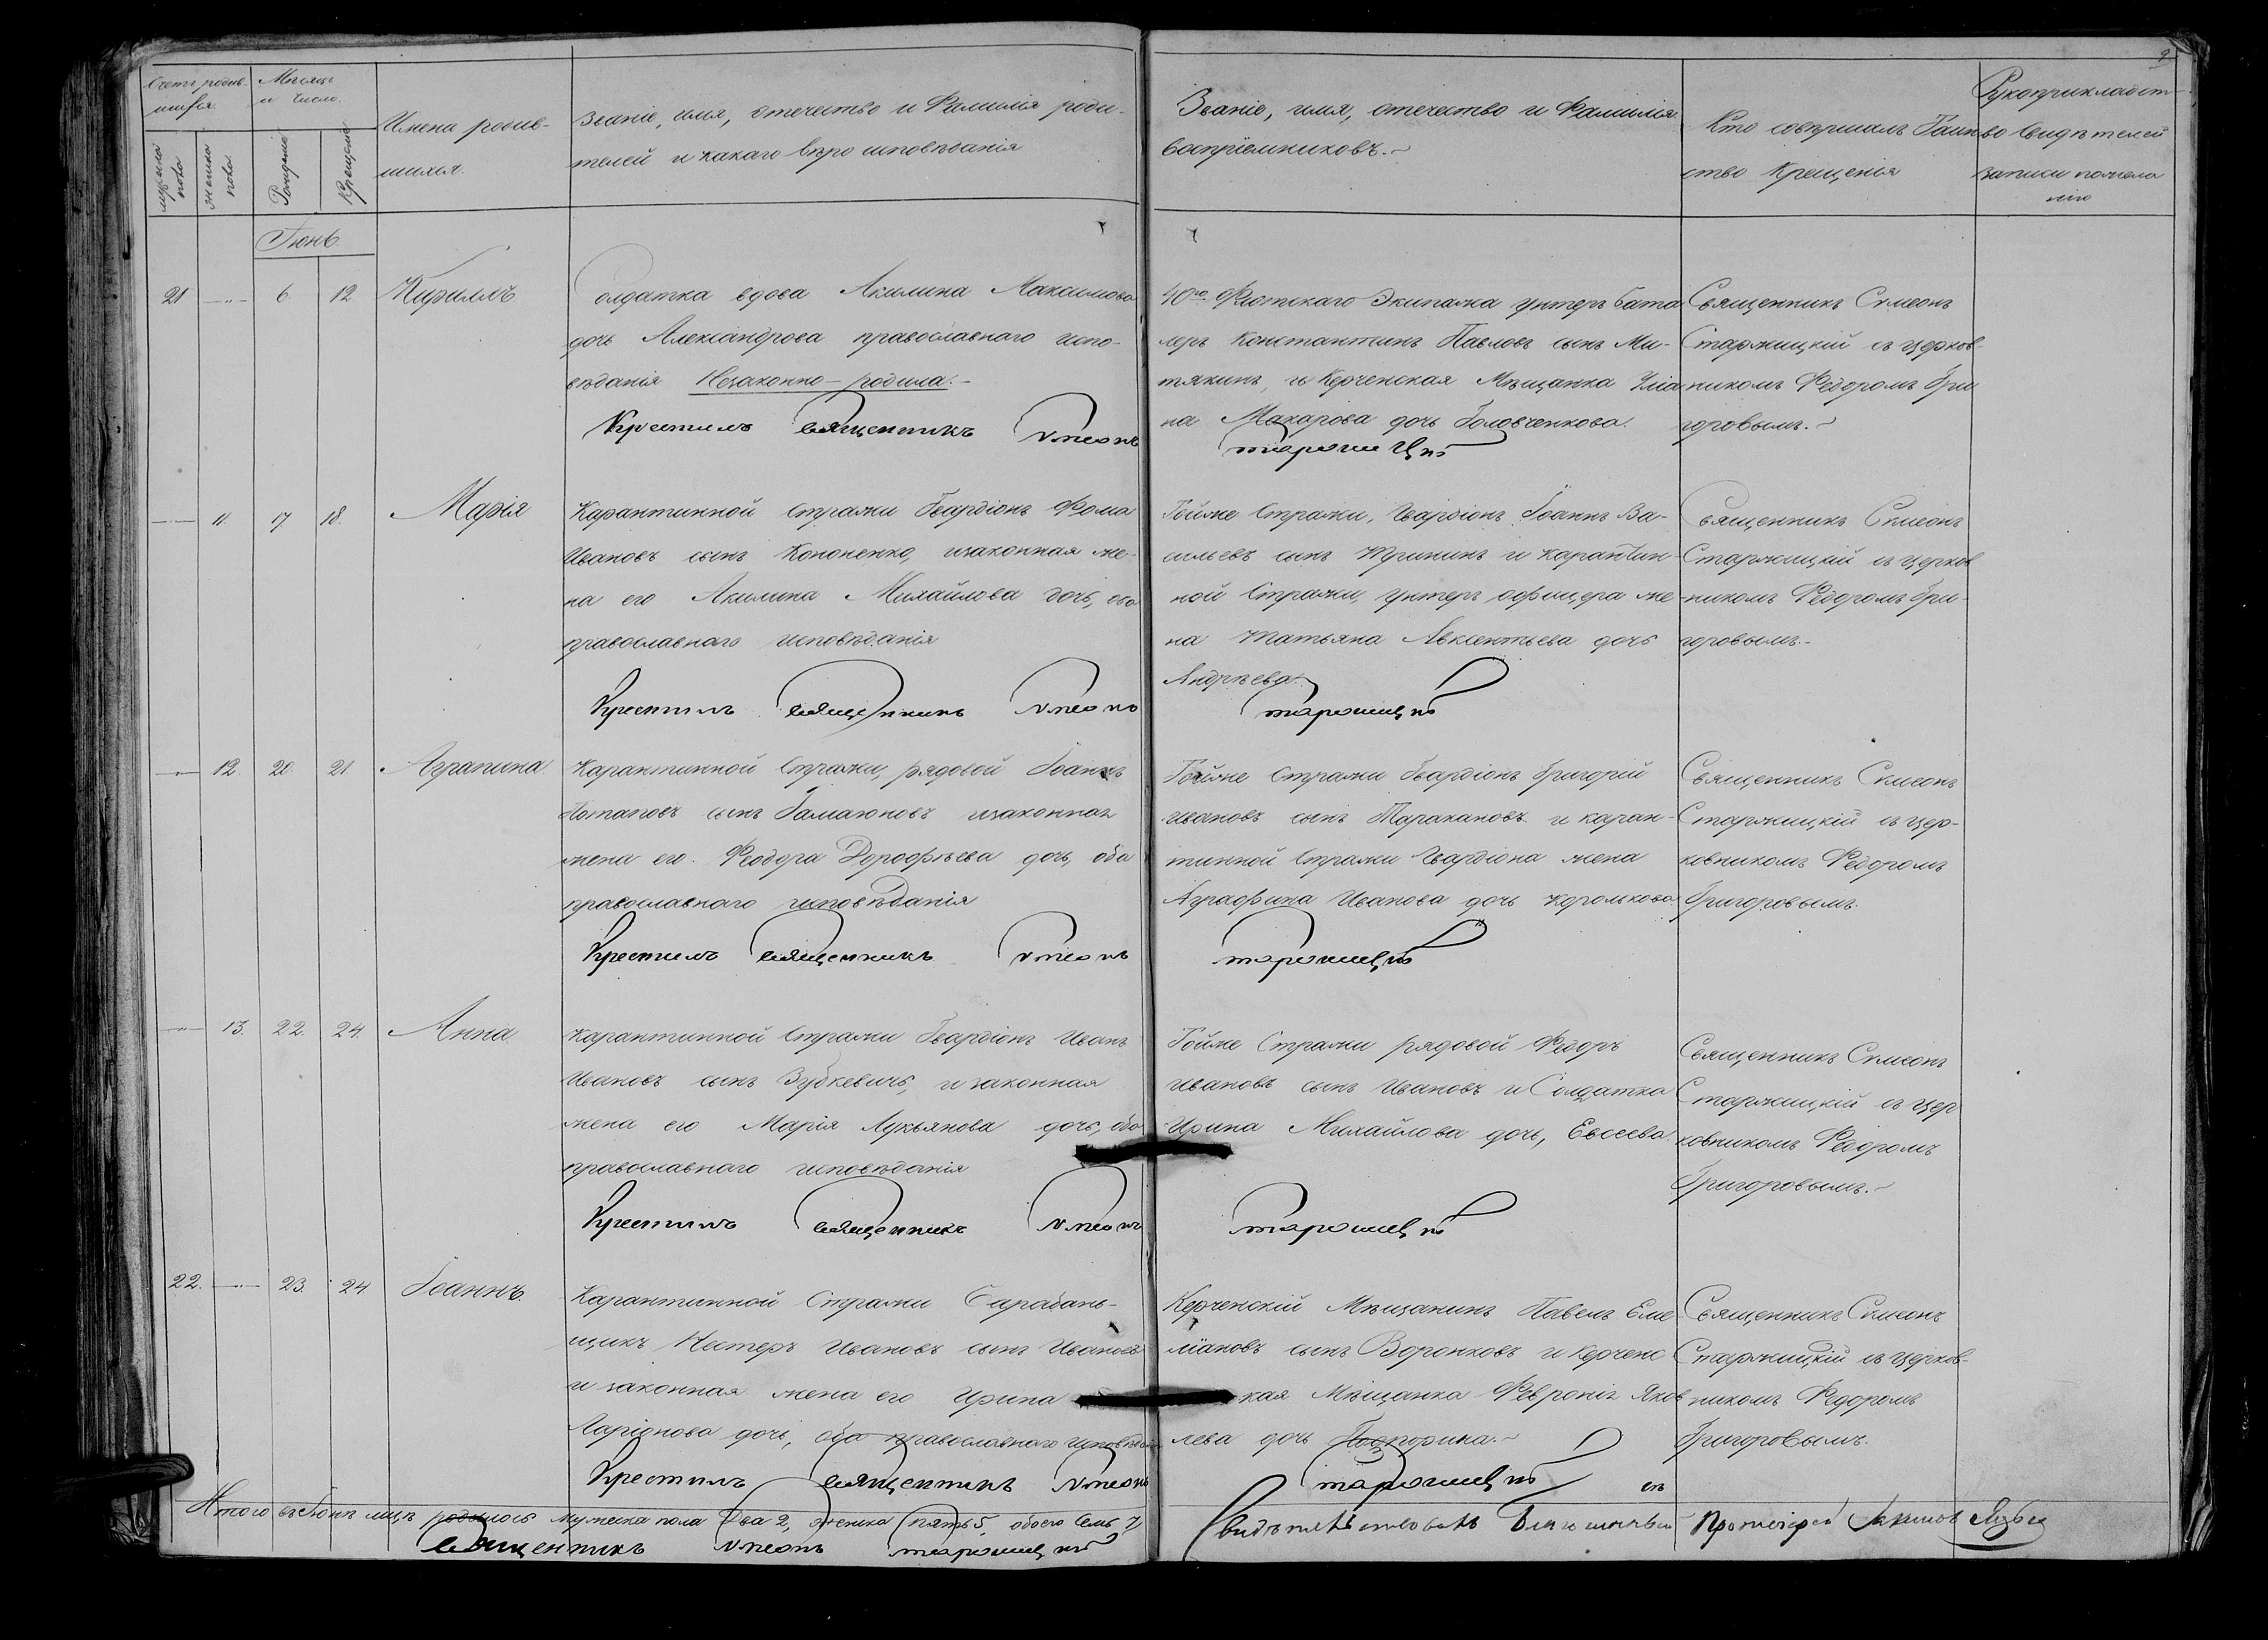 9
Счетъ родив-
шихся.
Мѣсяцъ
и число.
мужеска
пола
женска
пола
Рожденіе
Крещеніе
Имена родив-
шихся.
Званіе, имя, отечество и Фамилія роди-
телей и какаго вѣроисповѣданія
Званіе, имя, отечество и Фамилія
воспріемниковъ.
Кто совершалъ Таин-
ство Крещенія
Рукоприкладст-
во свидѣтелей
записи пожела
нію
Іюнь.
21 —"— 6. 12 Кириллъ
Солдатка вдова Акилина Максимова
дочь Александрова православнаго испо-
вѣданія Незаконно-родила.
Крестилъ священникъ Симеонъ Старжицкій
40го Флотскаго Экипажа унтеръ бата
леръ Константинъ Павловъ сынъ Ми-
тякинъ, и Керченская Мѣщанка Улиа
на Макарова дочь Головченкова.
Священникъ Симеонъ
Старжицкій съ церков-
никомъ Федоромъ Гри
горовымъ.
—"— 11. 17 18. Марія
Карантинной Стражи Гвардіонъ Фома
Ивановъ сынъ Кононенко, изаконная же-
на его Акилина Михайлова дочь, оба
православнаго исповѣданія
Крестилъ священникъ Симеонъ Старжицкій
Тойже Стражи, Гвардіонъ Іоаннъ Ва-
сильевъ сынъ и карантин-
ной Стражи, унтеръ офицера же-
на Татьяна Авксентьева дочь
Андрѣева.
Священникъ Симеонъ
Старжицкій съ церков
никомъ Федоромъ Гри-
горовымъ.
—"— 12. 20. 21 Агрипина
Карантинной Стражи, рядовой Іоаннъ
Потаповъ сынъ Гамаюновъ изаконная
жена его Феодора Дорофѣева дочь, оба
православнаго исповѣданія
Крестилъ священникъ Симеонъ Старжицкій
Тойже Стражи Гвардіонъ Григорій
Ивановъ сынъ Таракановъ и каран-
тинной Стражи Гвардіона жена
Аграфина Иванова дочь Коромкова
Священникъ Симеонъ
Старжицкій съ цер-
ковникомъ Федоромъ
Григоровымъ.
—"— 13. 22. 24. Анна
Карантинной Стражи Гвардіонъ Иванъ
Ивановъ сынъ Зубкевичъ, и законная
жена его Марія Лукьянова дочь, оба
православнаго исповѣданія
Крестилъ священникъ Симеонъ Старжицкій
Тойже Стражи рядовой Федоръ
Ивановъ сынъ Ивановъ и Солдатка
Ирина Михайлова дочь, Евсеева.
Священникъ Симеонъ
Старжицкій съ цер
ковникомъ Федоромъ
Григоровымъ.
22. —"— 23. 24 Іоаннъ.
Карантинной Стражи Барабань-
щикъ Нестеръ Ивановъ сынъ Ивановъ
и законная жена его Ирина
Ларіонова дочь, оба православнаго исповѣданія
Крестилъ священникъ Симеонъ Старжицкій
Керченскій Мѣщанинъ Павелъ Еме
ліановъ сынъ Воронковъ и Керченс
кая Мѣщанка Февронія Яков
лева дочь
Священникъ Симеонъ
Старжицкій съ церков-
никомъ Федоромъ
Григоровымъ.
Итого въ Іюнѣ мцѣ родилось мужеска пола два 2, женска пять 5, обоего семь 7,
священникъ Симеонъ Старжицкій
Свидѣтельствовалъ Благочинный Протоіерей